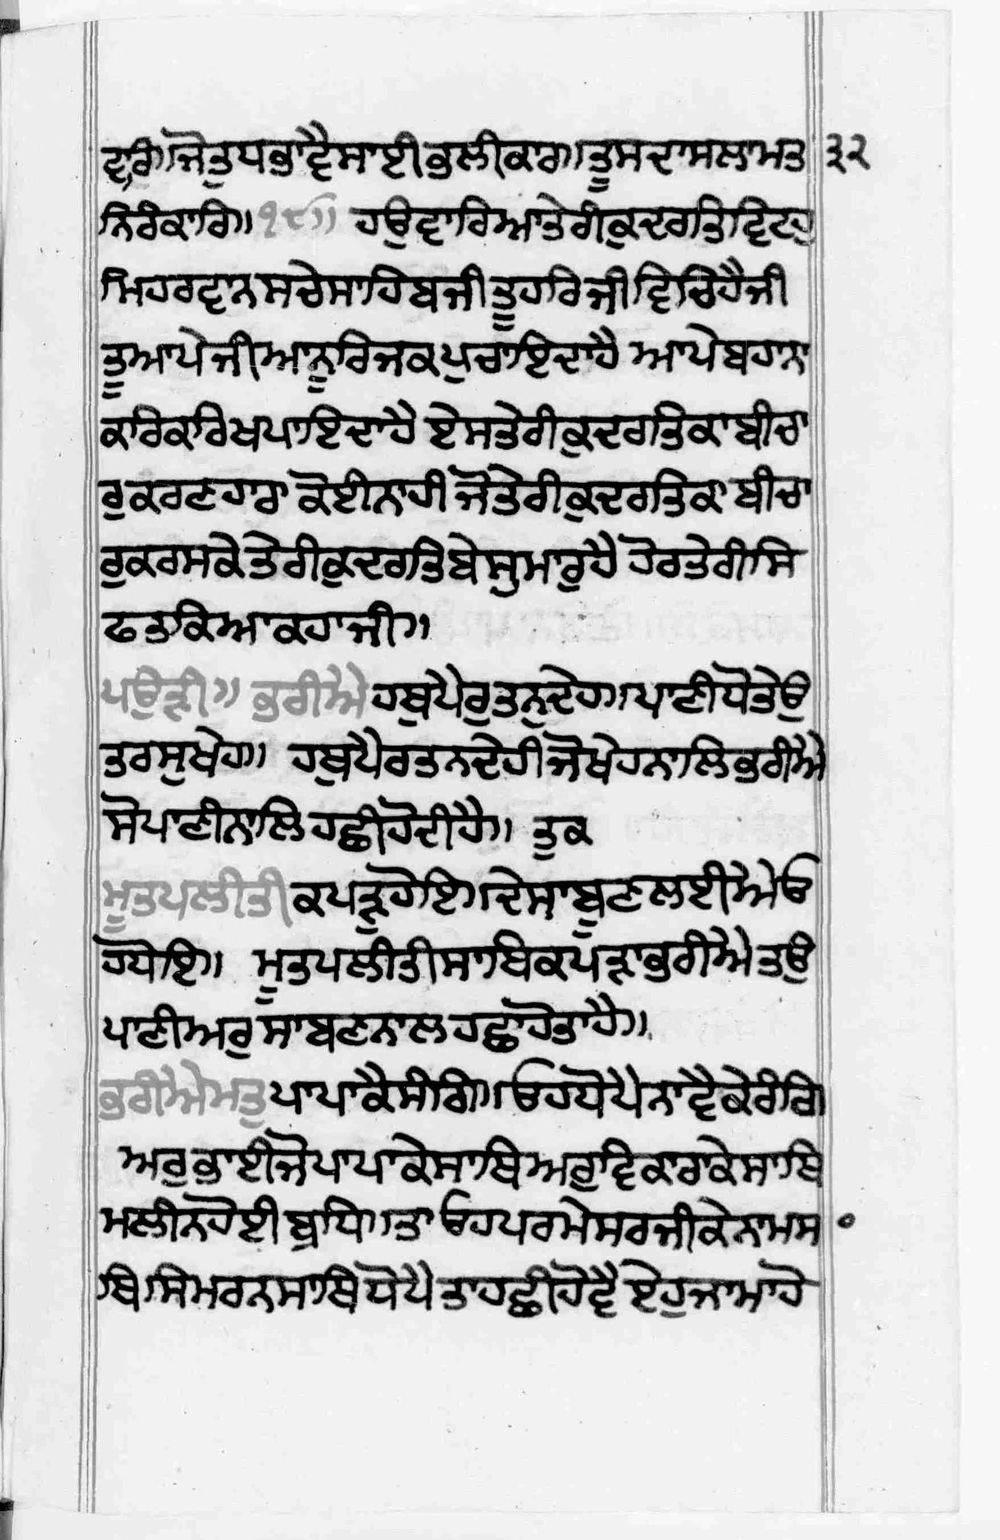 ਵਾਰ॥ਜੋਤੁਧਭਾਵੈਸਾਈਭਲੀਕਾਰ॥ਤੂਸਦਾਸਲਾਮਤ ੩੨
ਨਿਰੰਕਾਰਿ॥੧੮॥ ਹਉਵਾਰਿਆਤੇਰੀਕੁਦਰਤਿਵਿਟਹੁ
ਮਿਹਰਵਾਨਸਚੇਸਾਹਿਬਜੀਤੂਹਰਿਜੀਵਿਚਿਹੈਜੀ
ਤੂਆਪੇਜੀਆਨੂਰਿਜਕਪੁਚਾਇਦਾਹੈ ਆਪੇਬਹਾਨਾ
ਕਰਿਕਰਿਖਪਾਇਦਾਹੈ ਏਸਤੇਰੀਕੁਦਰਤਿਕਾਬੀਚਾ
ਰੁਕਰਣਹਾਰਾ ਕੋਈਨਾਹੀ ਜੋਤੇਰੀਕੁਦਰਤਿਕਾ ਬੀਚਾ
ਰੁਕਰਸਕੇਤੇਰੀਕੁਦਰਤਿਬੇਸੁਮਾਰੁਹੈ ਹੋਰਤੇਰੀਸਿ
ਫਤਕਿਆਕਹਾਜੀ॥
ਪਉੜੀ॥ ਭਰੀਐਹਥੁਪੈਰੁਤਨੁਦੇਹ॥ਪਾਣੀਧੋਤੇਉ
ਤਰਸੁਖੇਹ॥ ਹਥੁਪੈਰਤਨਦੇਹੀਜੋਖੇਹਨਾਲਿਭਰੀਐ
ਸੋਪਾਣੀਨਾਲਿਹਛੀਹੋਦੀਹੈ॥ ਤੁਕ
ਮੂਤਪਲੀਤੀਕਪੜੁਹੋਇ॥ਦੇਸਾਬੂਣਲਈਐਓ
ਹਧੋਇ॥ ਮੂਤਪਲੀਤੀਸਾਥਿਕਪੜਾਭਰੀਐਤਉ
ਪਾਣੀਅਰੁਸਾਬਣਨਾਲਹਛਾਹੋਤਾਹੈ॥
ਭਰੀਐਮਤੁਪਾਪਾਕੈਸੰਗਿ॥ਓਹਧੋਪੈਨਾਵੈਕੇਰੰਗਿ
ਅਰੁਭਾਈਜੋਪਾਪਾਕੇਸਾਥਿਅਰੁਵਿਕਾਰਾਕੇਸਾਥਿ
ਮਲੀਨਹੋਈਬੁਧਿ॥ਤਾਓਹਪਰਮੇਸਰਜੀਕੇਨਾਮਸ
ਥਿਸਿਮਰਨਸਾਥਿਧੋਪੈਤਾਹਛੀਹੋਵੈ ਏਹੁਜਾਮਾਹੋ